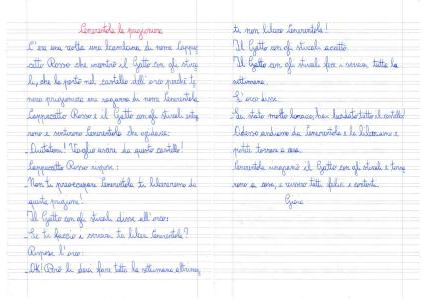 Cenerentola la prigioniera
C'era una volta una bambina di nome Cappuc
cetto Rosso che incontrò il Gatto con gli stiva
li, che la portò nel castello dell'orco perché te
neva prigioniera una ragazza di nome Cenerentola.
Cappuccetto Rosso e il Gatto con gli stivali
rono e sentirono Cenerentola che gridava:
- Aiutatemi! Voglio uscire da questo castello!
Cappuccetto Rosso rispose:
- Non ti preoccupare Cenerentola ti libereremo da
questa prigione!
Il Gatto con gli stivali disse all'orco:
- Se ti faccio i servizi tu liberi Cenerentola?
Rispose l'orco:
- OK! Però li devi fare tutta la settimana altrimen
ti non libero Cenerentola!
Il Gatto con gli stivali accettò.
Il Gatto con gli stivali fece i servizi tutta la
settimana.
E l'orco disse:
- Sei stato molto bravo, hai lucidato tutto il castello!
Adesso andiamo da Cenerentola e la libereremo e
potrà tornare a casa.
Cenerentola ringraziò il Gatto con gli stivali e torna
rono a casa, e vissero tutti felici e contenti.